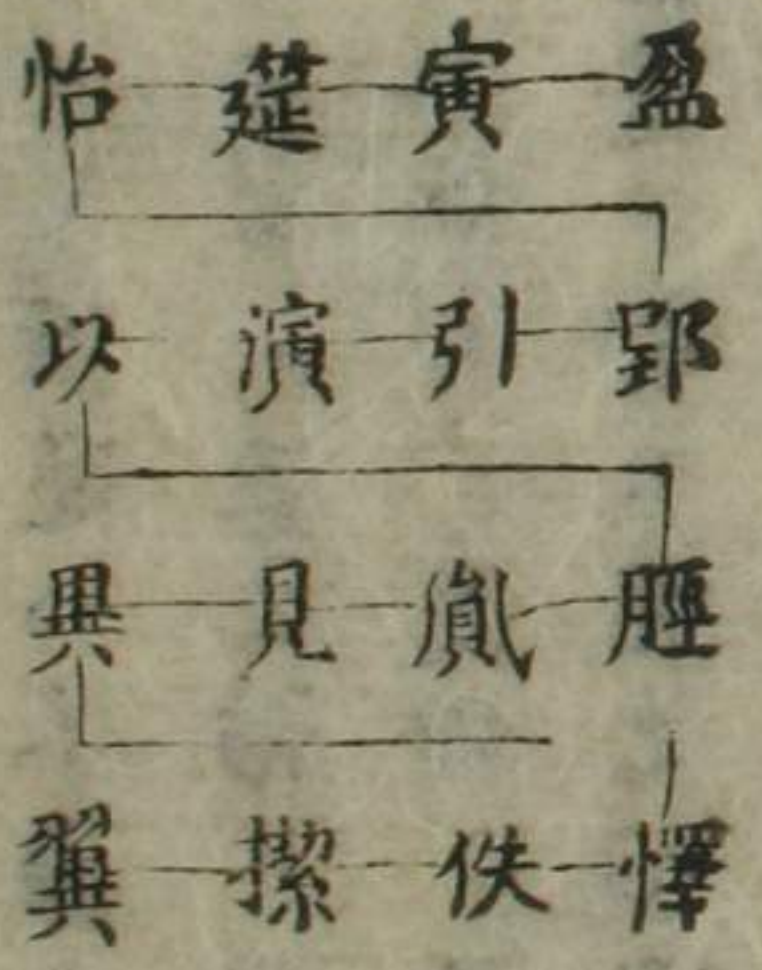 盈寅筵怡
郢引演以
脛胤見異
懌佚翼